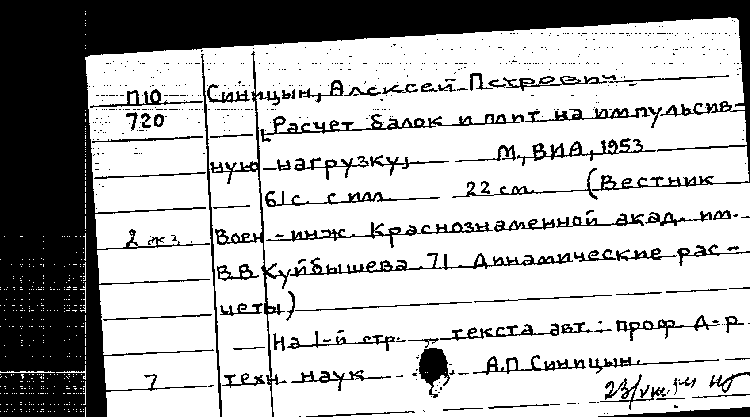 П10 Синицын, Алексей Петрович.
720 Расчет балок и плит на импульсив-
ную нагрузку, М, ВИА, 1953
61с. с илл. 22 см. (Вестник
2 экз. Воен-инж. Краснознаменной акад. им.
В.В Куйбышева. 71. Динамические рас-
четы)
На 1-й стр. текста авт.: проф. д-р
7 техн. наук А.П Синицын.
23/VIII